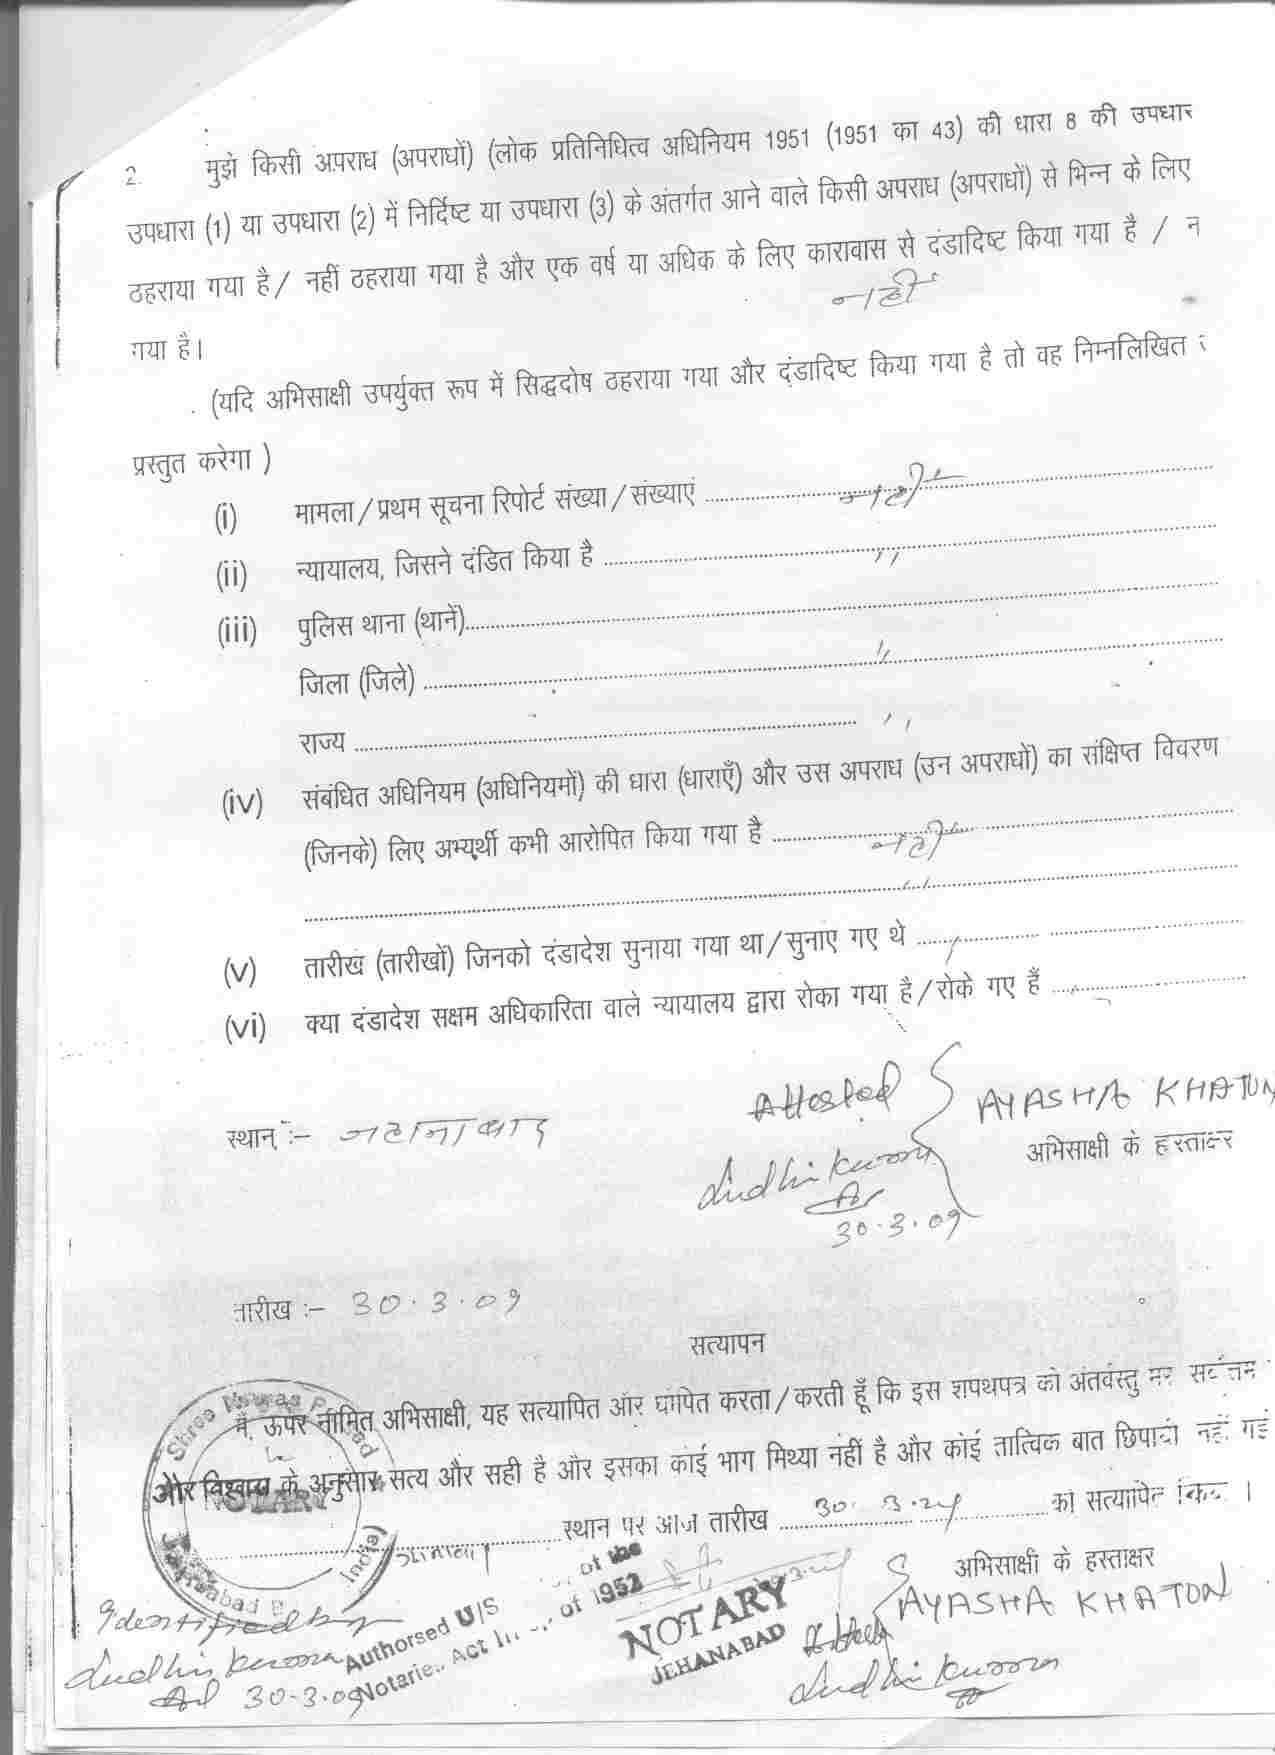 2. मुझे किसी अपराध (अपराधों) (लोक प्रतिनिधित्व अधिनियम 1951 (1951 का 43) की धारा 8 की उपधार
उपधारा (1) या उपधारा (2) में निर्दिष्ट या उपधारा (3) के अंतर्गत आने वाले किसी अपराध (अपराधों) से भिन्न के लिए
ठहराया गया है / नहीं ठहराया गया है और एक वर्ष या अधिक के लिए कारावास से दंडादिष्ट किया गया है / न
नहीं
गया है।
(यदि अभिसाक्षी उपर्युक्त रूप में सिद्धदोष ठहराया गया और दंडादिष्ट किया गया है तो वह निम्नलिखित
प्रस्तुत करेगा )
(i) मामला / प्रथम सूचना रिपोर्ट संख्या / संख्याएं नहीं
(ii) न्यायालय, जिसने दंडित किया है ,,
(iii) पुलिस थाना (थानें)
जिला (जिले) ,,
राज्य ,,
(iv) संबंधित अधिनियम (अधिनियमों) की धारा (धाराएँ) और उस अपराध (उन अपराधों) का संक्षिप्त विवरण
(जिनके) लिए अभ्यर्थी कभी आरोपित किया गया है नहीं
,,
(v) तारीख (तारीखों) जिनको दंडादेश सुनाया गया था / सुनाए गए थे
(vi) क्या दंडादेश सक्षम अधिकारिता वाले न्यायालय द्वारा रोका गया है / रोके गए हैं
Attested
AYASHA KHATUN
स्थान :- जहानाबाद
अभिसाक्षी के हस्ताक्षर
30.3.09
तारीख :- 30.3.09
सत्यापन
मैं, ऊपर नामित अभिसाक्षी, यह सत्यापित और घोषित करता / करती हूँ कि इस शपथपत्र की अंतर्वस्तु
और विश्वास के अनुसार सत्य और सही है और इसका कोई भाग मिथ्या नहीं है और कोई तात्विक बात छिपायी नहीं गई
स्थान पर आज तारीख 30.3.09 को सत्यापित किया ।
NOTARY
अभिसाक्षी के हस्ताक्षर
AYASHA KHATON
Identified by
30-3-09
Authorsed U/S of the
Notaries Act of 1952
NOTARY
JEHANABAD